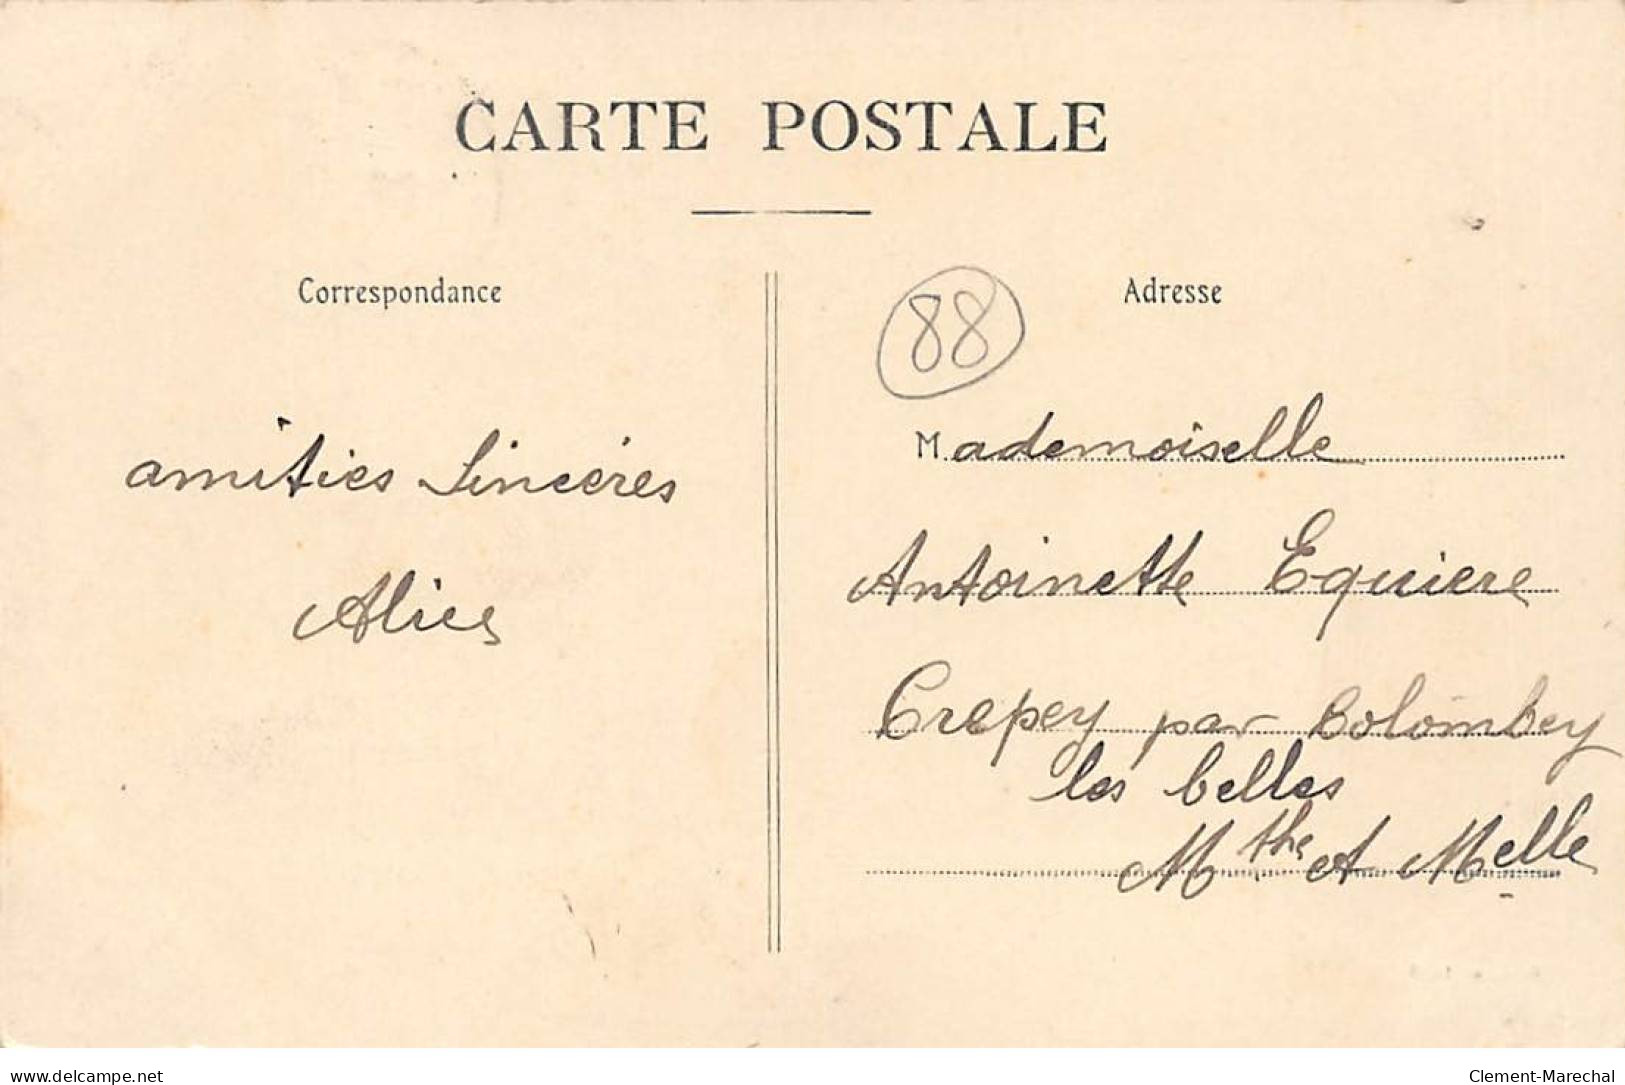 CARTE POSTALE
Correspondance
Adresse
88
amitiés Sincères
Alice
Mademoiselle
Antoinette Equiere
Crepey par Colombey
les belles
Mthe et Melle
www.delcampe.net
Clement-Marechal